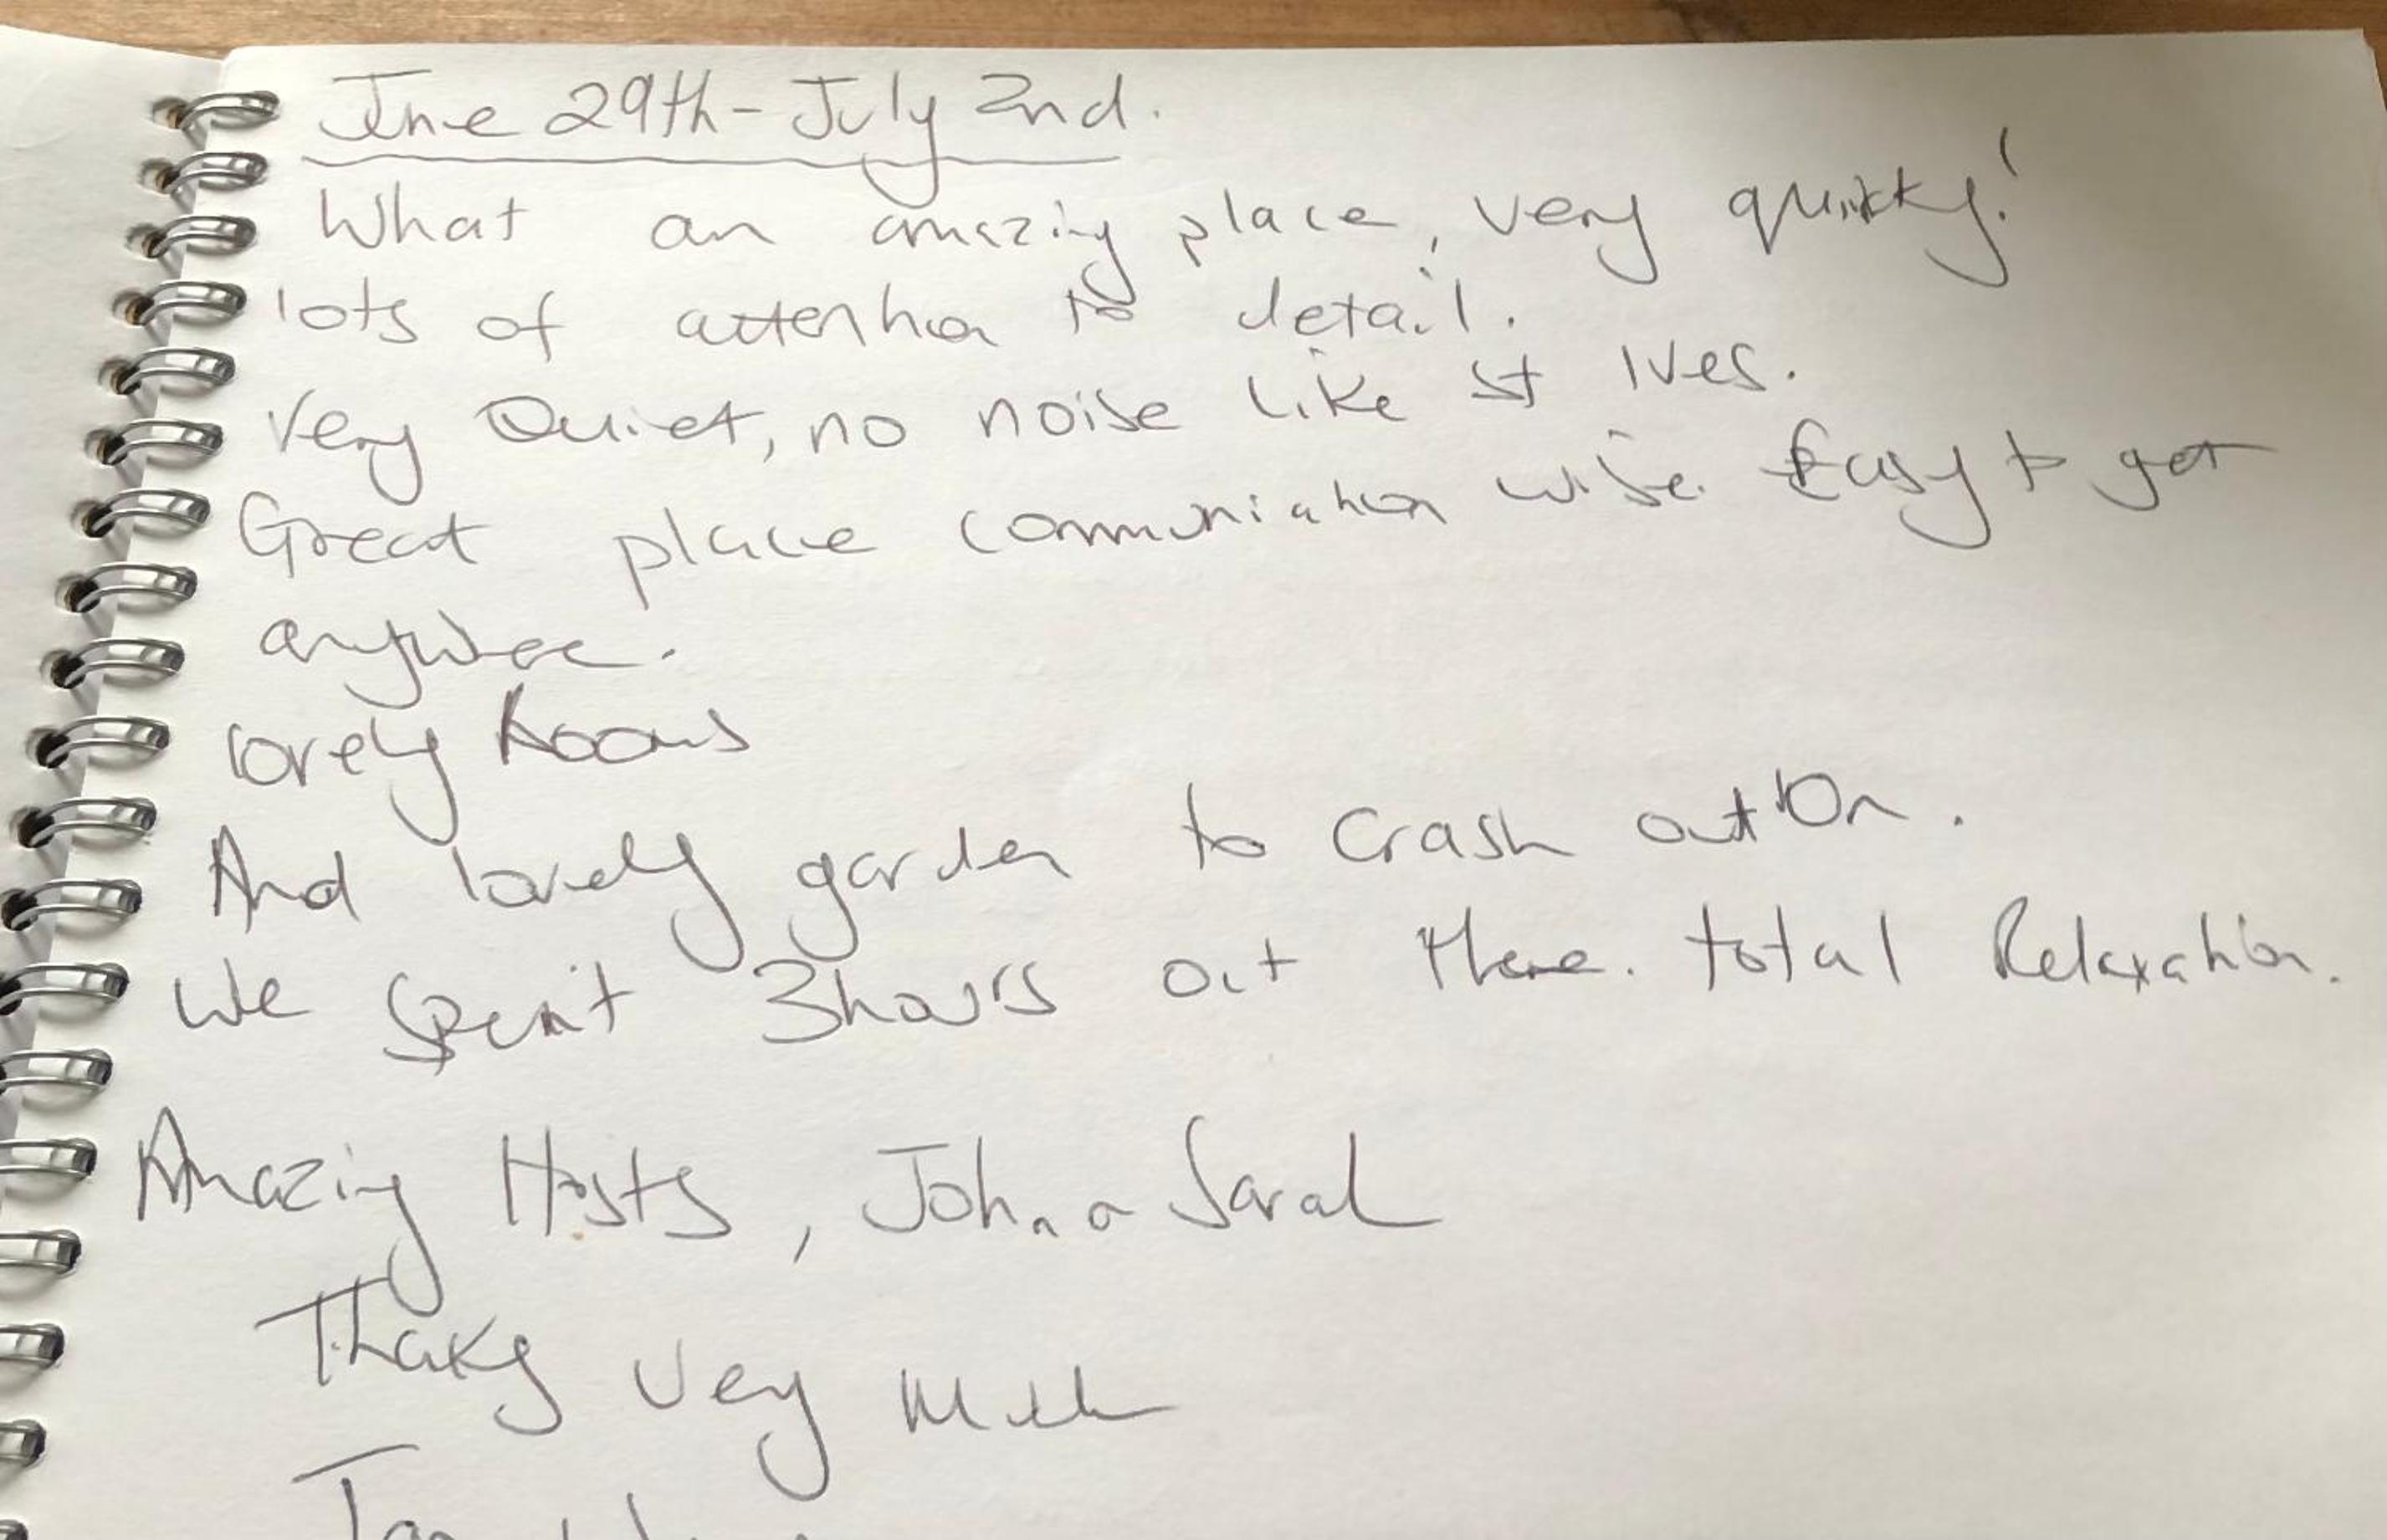 June 29th - July 2nd.
What an amazing place, very quirky!
lots of attention to detail.
Very Quiet, no noise like St Ives.
Great place communication wise. Easy to get
anywhere.
lovely Rooms
And lovely garden to crash out on.
We spent 3 hours out there. total Relaxation.
Amazing Hosts, John & Sarah
Thanks very much